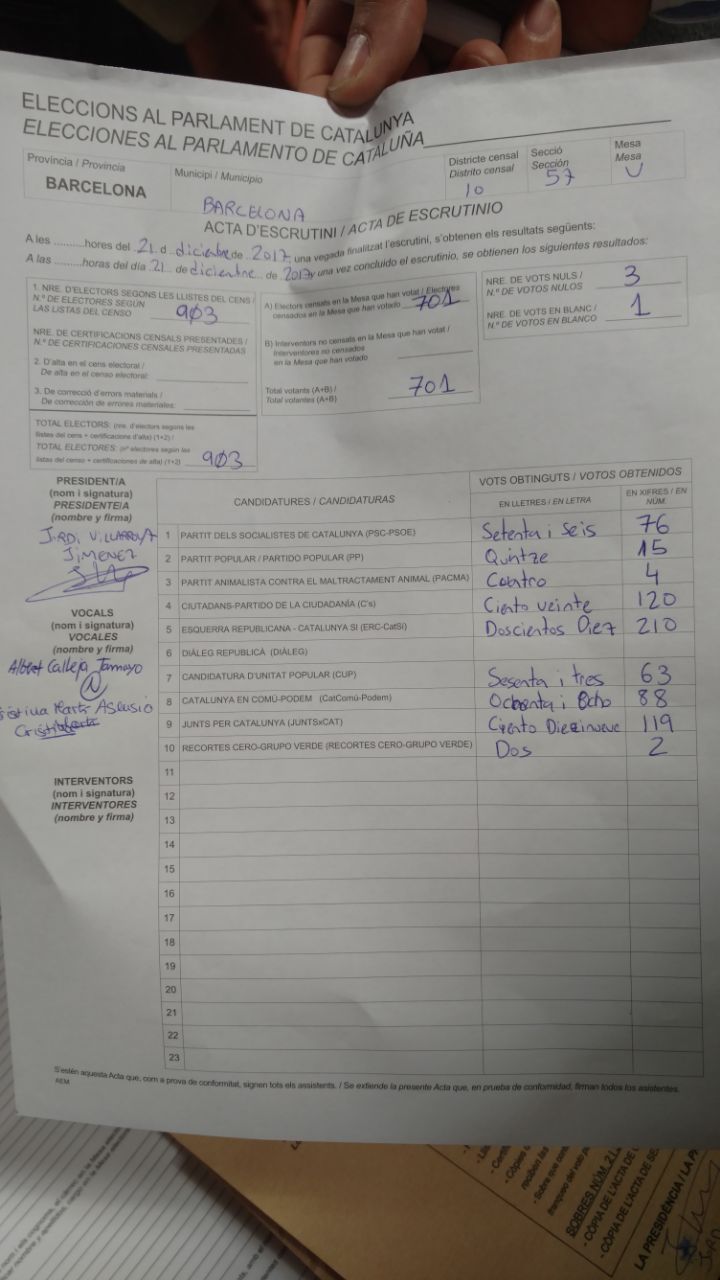 ELECCIONS AL PARLAMENT DE CATALUNYA
ELECCIONES AL PARLAMENTO DE CATALUÑA
Província / Provincia
BARCELONA
Municipi / Municipio
BARCELONA
Districte censal
Distrito censal
10
Secció
Sección
57
Mesa
Mesa
U
ACTA D'ESCRUTINI / ACTA DE ESCRUTINIO
A les ..........hores del 21 d diciembre de 2017, una vegada finalitzat l'escrutini, s'obtenen els resultats següents:
A las ..........horas del día 21 de diciembre de 2017 y una vez concluido el escrutinio, se obtienen los siguientes resultados:
1. NRE. D'ELECTORS SEGONS LES LLISTES DEL CENS /
N.º DE ELECTORES SEGÚN
LAS LISTAS DEL CENSO 903
NRE. DE CERTIFICACIONS CENSALS PRESENTADES /
N.º DE CERTIFICACIONES CENSALES PRESENTADAS
2. D'alta en el cens electoral /
De alta en el censo electoral:
3. De correcció d'errors materials /
De corrección de errores materiales:
TOTAL ELECTORS: (nre. d'electors segons les
llistes del cens + certificacions d'alta) (1+2) /
TOTAL ELECTORES: (nº electores según las
listas del censo + certificaciones de alta) (1+2) 903
A) Electors censats en la Mesa que han votat / Electores
censados en la Mesa que han votado 701
B) Interventors no censats en la Mesa que han votat /
Interventores no censados
en la Mesa que han votado
Total votants (A+B) /
Total votantes (A+B) 701
NRE. DE VOTS NULS /
N.º DE VOTOS NULOS 3
NRE. DE VOTS EN BLANC /
N.º DE VOTOS EN BLANCO 1
PRESIDENT/A
(nom i signatura)
PRESIDENTE/A
(nombre y firma)
JORDI VILLARROYA
JIMENEZ
VOCALS
(nom i signatura)
VOCALES
(nombre y firma)
Albert Calleja Tamayo
Marts
INTERVENTORS
(nom i signatura)
INTERVENTORES
(nombre y firma)
CANDIDATURES / CANDIDATURAS
VOTS OBTINGUTS / VOTOS OBTENIDOS
EN LLETRES / EN LETRA
EN XIFRES / EN
NÚM.
1 PARTIT DELS SOCIALISTES DE CATALUNYA (PSC-PSOE) Setenta i seis 76
2 PARTIT POPULAR / PARTIDO POPULAR (PP) Quintze 15
3 PARTIT ANIMALISTA CONTRA EL MALTRACTAMENT ANIMAL (PACMA) Cuatro 4
4 CIUTADANS-PARTIDO DE LA CIUDADANÍA (C's) Ciento veinte 120
5 ESQUERRA REPUBLICANA - CATALUNYA SI (ERC-CatSí) Doscientos Diez 210
6 DIÀLEG REPUBLICÀ (DIÀLEG)
7 CANDIDATURA D'UNITAT POPULAR (CUP) Sesenta i tres 63
8 CATALUNYA EN COMÚ-PODEM (CatComú-Podem) Ochenta i Ocho 88
9 JUNTS PER CATALUNYA (JUNTSxCAT) Ciento Diezinueve 119
10 RECORTES CERO-GRUPO VERDE (RECORTES CERO-GRUPO VERDE) Dos 2
11
12
13
14
15
16
17
18
19
20
21
22
23
S'estén aquesta Acta que, com a prova de conformitat, signen tots els assistents. / Se extiende la presente Acta que, en prueba de conformidad, firman todos los asistentes.
AEM.
SOBRES NÚM. 2
- CÒPIA DE L'ACTA DE
- CÒPIA DE L'ACTA DE SE
LA PRESIDÈNCIA / LA P